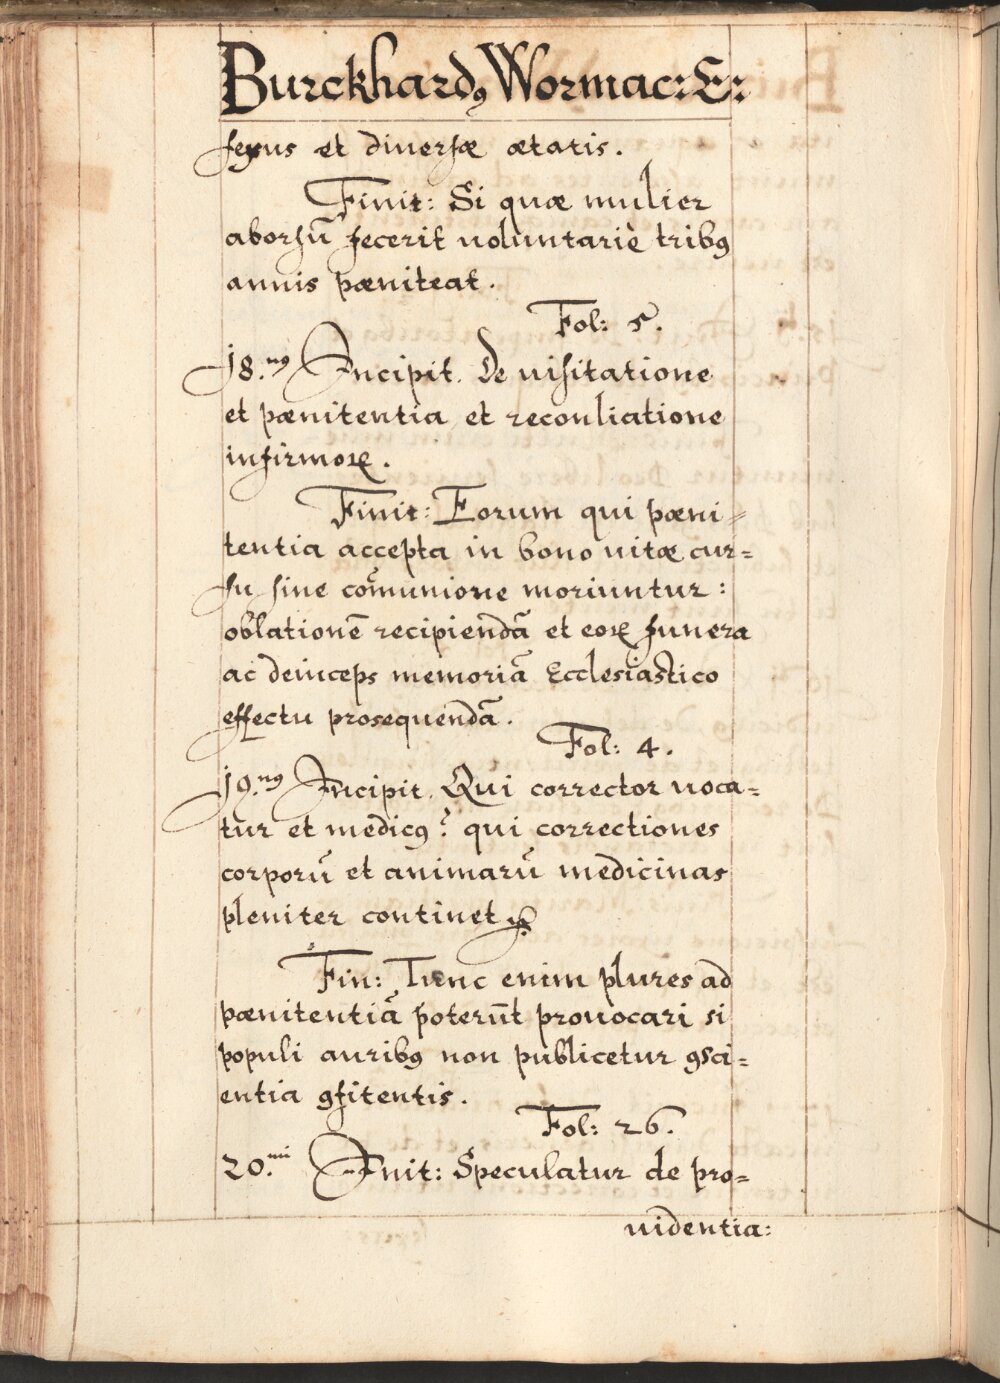 Burckhardꝰ Wormac: E:
sexus et diuersæ ætatis.
Finit: Si quæ mulier
aborsũ fecerit uoluntariè tribꝰ
annis pæniteat.
Fol: 5.
18.nꝰ Incipit. De uisitatione
et pænitentia et reconliatione
infirmoꝝ.
Finit: Eorum qui pæni=
tentia accepta in bono uitæ cur=
su sine com̃unione moriuntur:
oblationẽ recipiendã et eoꝝ funera
ac deinceps memoriã Ecclesiastico
effectu prosequendã.
Fol: 4.
19.nꝰ Incipit. Qui corrector uoca=
tur et medicꝰ: qui correctiones
corporũ et animarũ medicinas
pleniter continet
Fin: Tunc enim plures ad
pænitentiã poterũt prouocari si
populi auribꝰ non publicetur ꝯsci=
entia ꝯfitentis.
Fol: 26.
20.mi Init: Speculatur de pro=
uidentia: